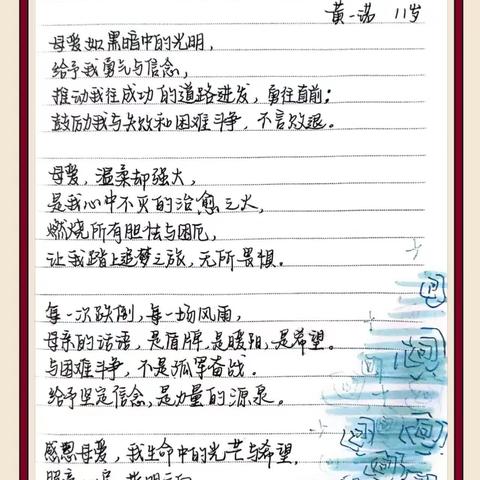 黄一诺 11岁
母爱如黑暗中的光明，
给予我勇气与信念，
推动我往成功的道路进发，勇往直前；
鼓励我与失败和困难斗争，不言败退。
母爱，温柔却强大，
是我心中不灭的治愈之火，
燃烧所有胆怯与困厄，
让我踏上追梦之旅，无所畏惧。
每一次跌倒，每一场风雨，
母亲的话语，是盾牌，是暖阳，是希望。
与困难斗争，不是孤军奋战。
给予坚定信念，是力量的源泉。
感恩母爱，我生命中的光芒与希望，